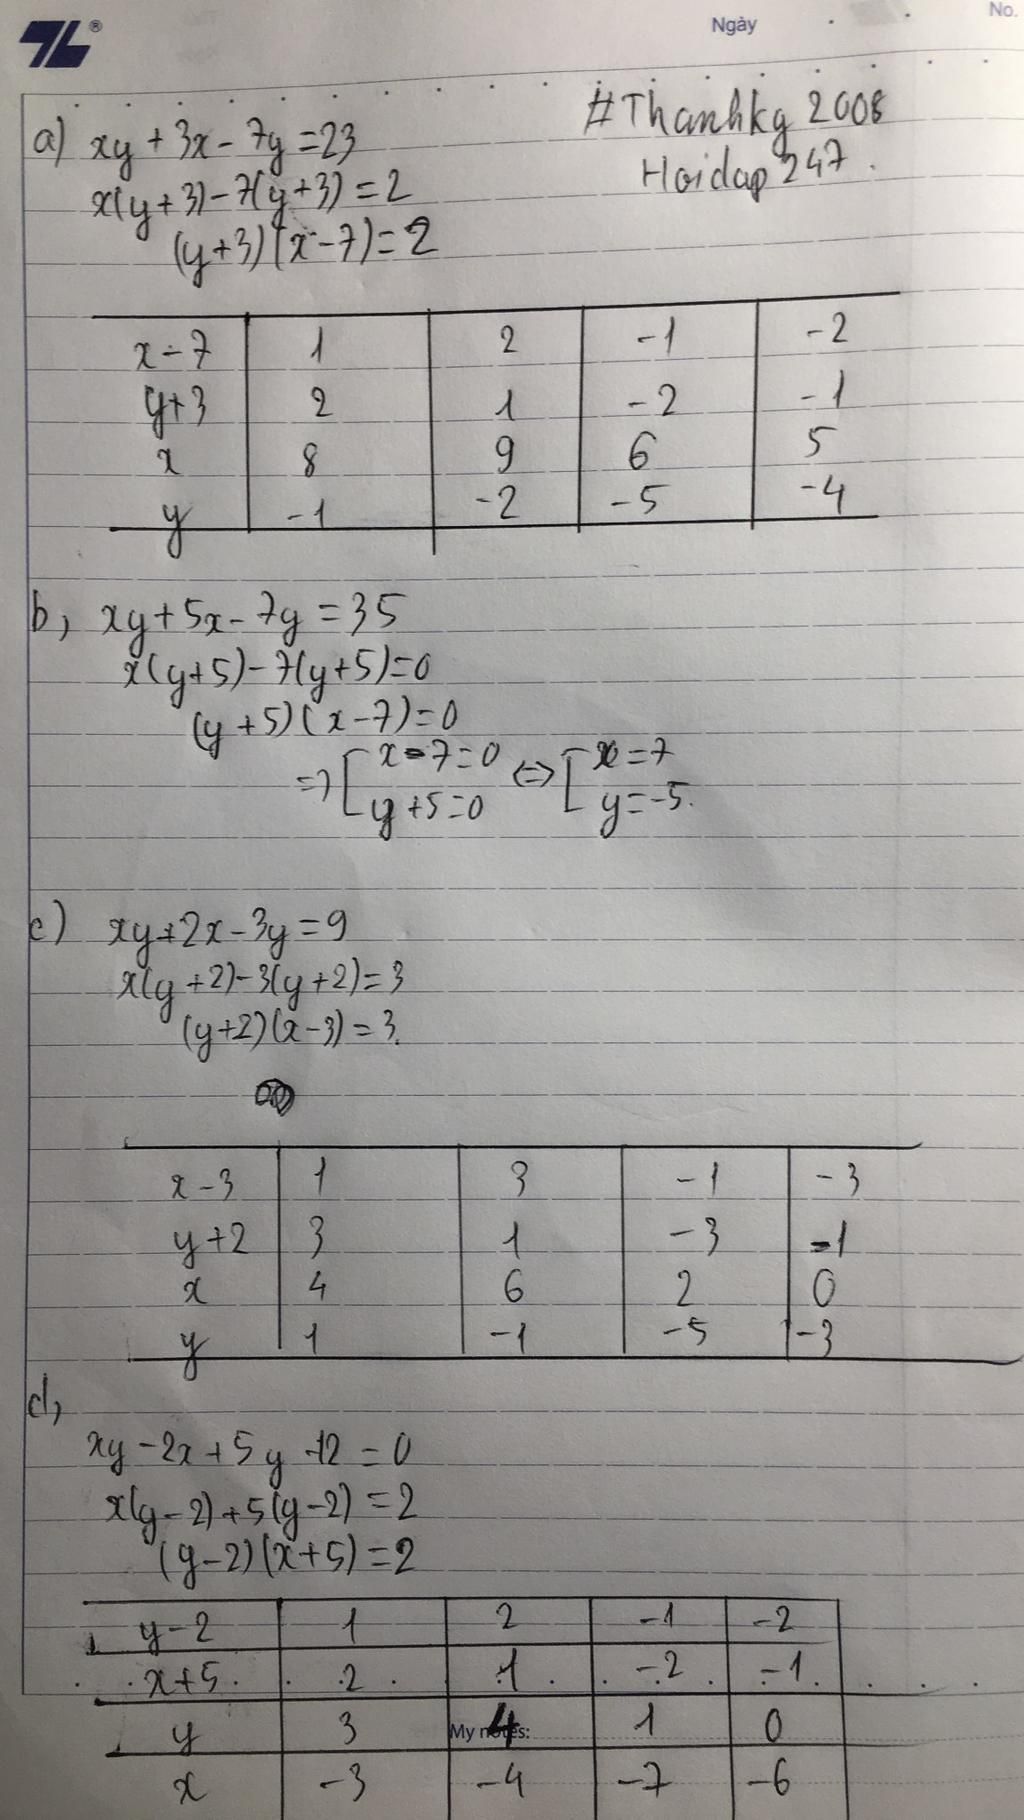 Ngày
No.
#Thanhkg 2008
Hoidap 247.
a) xy + 3x - 7y = 23
x(y+3) - 7(y+3) = 2
(y+3)(x-7) = 2
x-7 1 2 -1 -2
y+3 2 1 -2 -1
x 8 9 6 5
y -1 -2 -5 -4
b, xy + 5x - 7y = 35
x(y+5) - 7(y+5) = 0
(y+5)(x-7) = 0
=> [ x-7=0 <=> [ x=7
y+5=0 y=-5.
c) xy + 2x - 3y = 9
x(y+2) - 3(y+2) = 3
(y+2)(x-3) = 3.
x-3 1 3 -1 -3
y+2 3 1 -3 -1
x 4 6 2 0
y 1 -1 -5 -3
d,
xy - 2x + 5y - 12 = 0
x(y-2) + 5(y-2) = 2
(y-2)(x+5) = 2
y-2 1 2 -1 -2
x+5 2 1 -2 -1
y 3 4 1 0
My notes:
x -3 -4 -7 -6